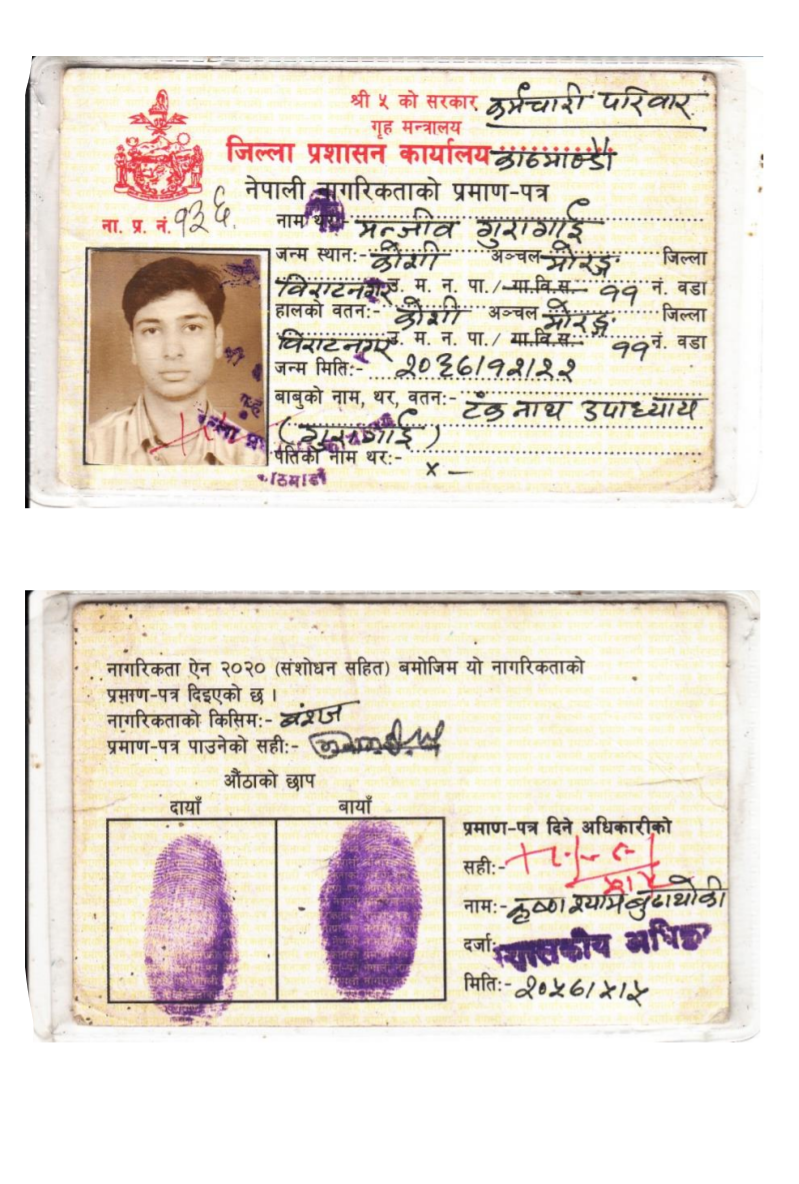 श्री ५ को सरकार कर्मचारी परिवार
गृह मन्त्रालय
जिल्ला प्रशासन कार्यालय काठमाण्डौ
नेपाली नागरिकताको प्रमाण-पत्र
ना. प्र. नं. १३६
नाम थर:- मन्जीव गुरागाई
जन्म स्थान:- कोशी अञ्चल मोरङ्ग जिल्ला
विराटनगर उ. म. न. पा./गा.वि.स. ११ नं. वडा
हालको वतन:- कोशी अञ्चल मोरङ्ग जिल्ला
विराटनगर उ. म. न. पा./गा.वि.स. ११ नं. वडा
जन्म मिति:- २०३६।१२।२२
बाबुको नाम, थर, वतन:- टंक नाथ उपाध्याय
(गुरागाई)
पतिको नाम थर:- x —
नागरिकता ऐन २०२० (संशोधन सहित) बमोजिम यो नागरिकताको
प्रमाण-पत्र दिइएको छ ।
नागरिकताको किसिम:- बंशज
प्रमाण-पत्र पाउनेको सही:-
औंठाको छाप
दायाँ बायाँ
प्रमाण-पत्र दिने अधिकारीको
सही:-
नाम:- कृष्ण श्याम बुढाथोकी
दर्जा:- शासकीय अधिकृ
मिति:- २०५७।५।५